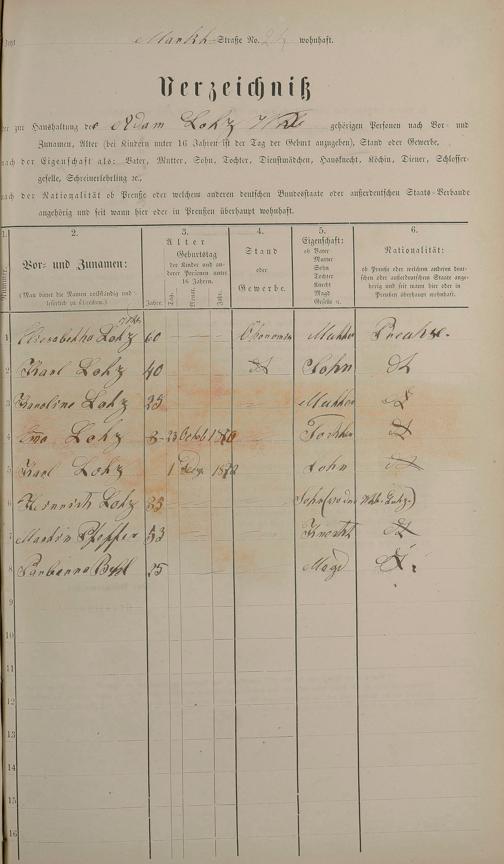 Markt Straße No. 24 wohnhaft.
Verzeichniß
der zur Haushaltung des Adam Lotz gehörigen Personen nach Vor- und
Zunamen, Alter (bei Kindern unter 16 Jahren ist der Tag der Geburt anzugeben), Stand oder Gewerbe,
nach der Eigenschaft als: Vater, Mutter, Sohn, Tochter, Dienstmädchen, Hausknecht, Köchin, Diener, Schlosser-
geselle, Schreinerlehrling ꝛc.,
nach der Nationalität ob Preuße oder welchem anderen deutschen Bundesstaate oder außerdeutschen Staats-Verbande
angehörig und seit wann hier oder in Preußen überhaupt wohnhaft.
1.
Nummer.
2.
Vor- und Zunamen:
(Man bittet die Namen vollständig und
leserlich zu schreiben.)
3.
Alter
Geburtstag
der Kinder und an-
derer Personen unter
16 Jahren.
Jahre. Tag. Monat. Jahr.
4.
Stand
oder
Gewerbe.
5.
Eigenschaft:
ob Vater
Mutter
Sohn
Tochter
Knecht
Magd
Geselle ꝛc.
6.
Nationalität:
ob Preuße oder welchem anderen deut-
schen oder außerdeutschen Staate ange-
hörig und seit wann hier oder in
Preußen überhaupt wohnhaft.
1 Elisabetha Lotz 60 Mutter Preuße.
2 Karl Lotz 40 Sohn
3 Karoline Lotz 25 Mutter
4 Lotz 3 23 Octob 1870 Tochter
5 Karl Lotz 1 1872 Sohn
6 Heinrich Lotz 35 Sohn
7 Martin Pfeffer 53 Knecht
8 25 Magd
9
10
11
12
13
14
15
16